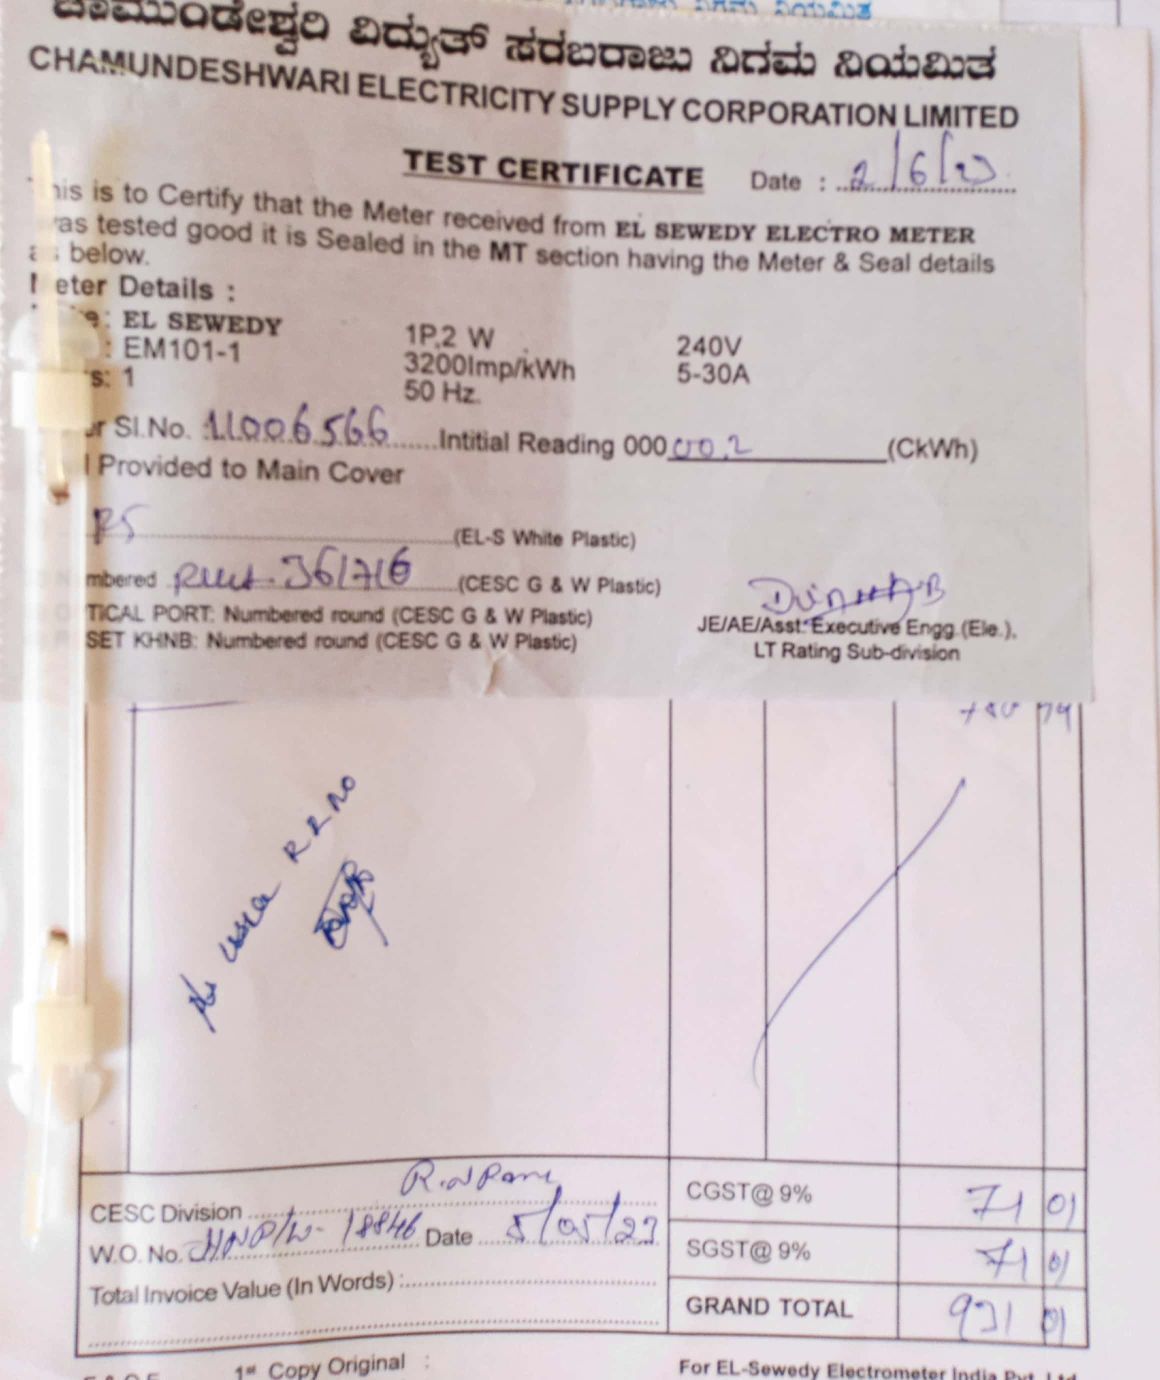 ಚಾಮುಂಡೇಶ್ವರಿ ವಿದ್ಯುತ್ ಸರಬರಾಜು ನಿಗಮ ನಿಯಮಿತ
CHAMUNDESHWARI ELECTRICITY SUPPLY CORPORATION LIMITED
TEST CERTIFICATE Date : 2/6/23
his is to Certify that the Meter received from EL SEWEDY ELECTRO METER
was tested good it is Sealed in the MT section having the Meter & Seal details
as below.
Meter Details :
e: EL SEWEDY 1P,2 W 240V
: EM101-1 3200Imp/kWh 5-30A
s: 1 50 Hz.
r Sl.No. 11006566 Intitial Reading 000 00.2 (CkWh)
l Provided to Main Cover
(EL-S White Plastic)
mbered 361716 (CESC G & W Plastic)
TICAL PORT: Numbered round (CESC G & W Plastic)
SET KHNB: Numbered round (CESC G & W Plastic)
JE/AE/Asst. Executive Engg.(Ele.),
LT Rating Sub-division
R R No
CESC Division
CGST@ 9% 71 01
W.O. No. 18846 Date 5/05/23
SGST@ 9% 71 01
Total Invoice Value (In Words) :
GRAND TOTAL 931 01
1st Copy Original :
For EL-Sewedy Electrometer India Pvt. Ltd